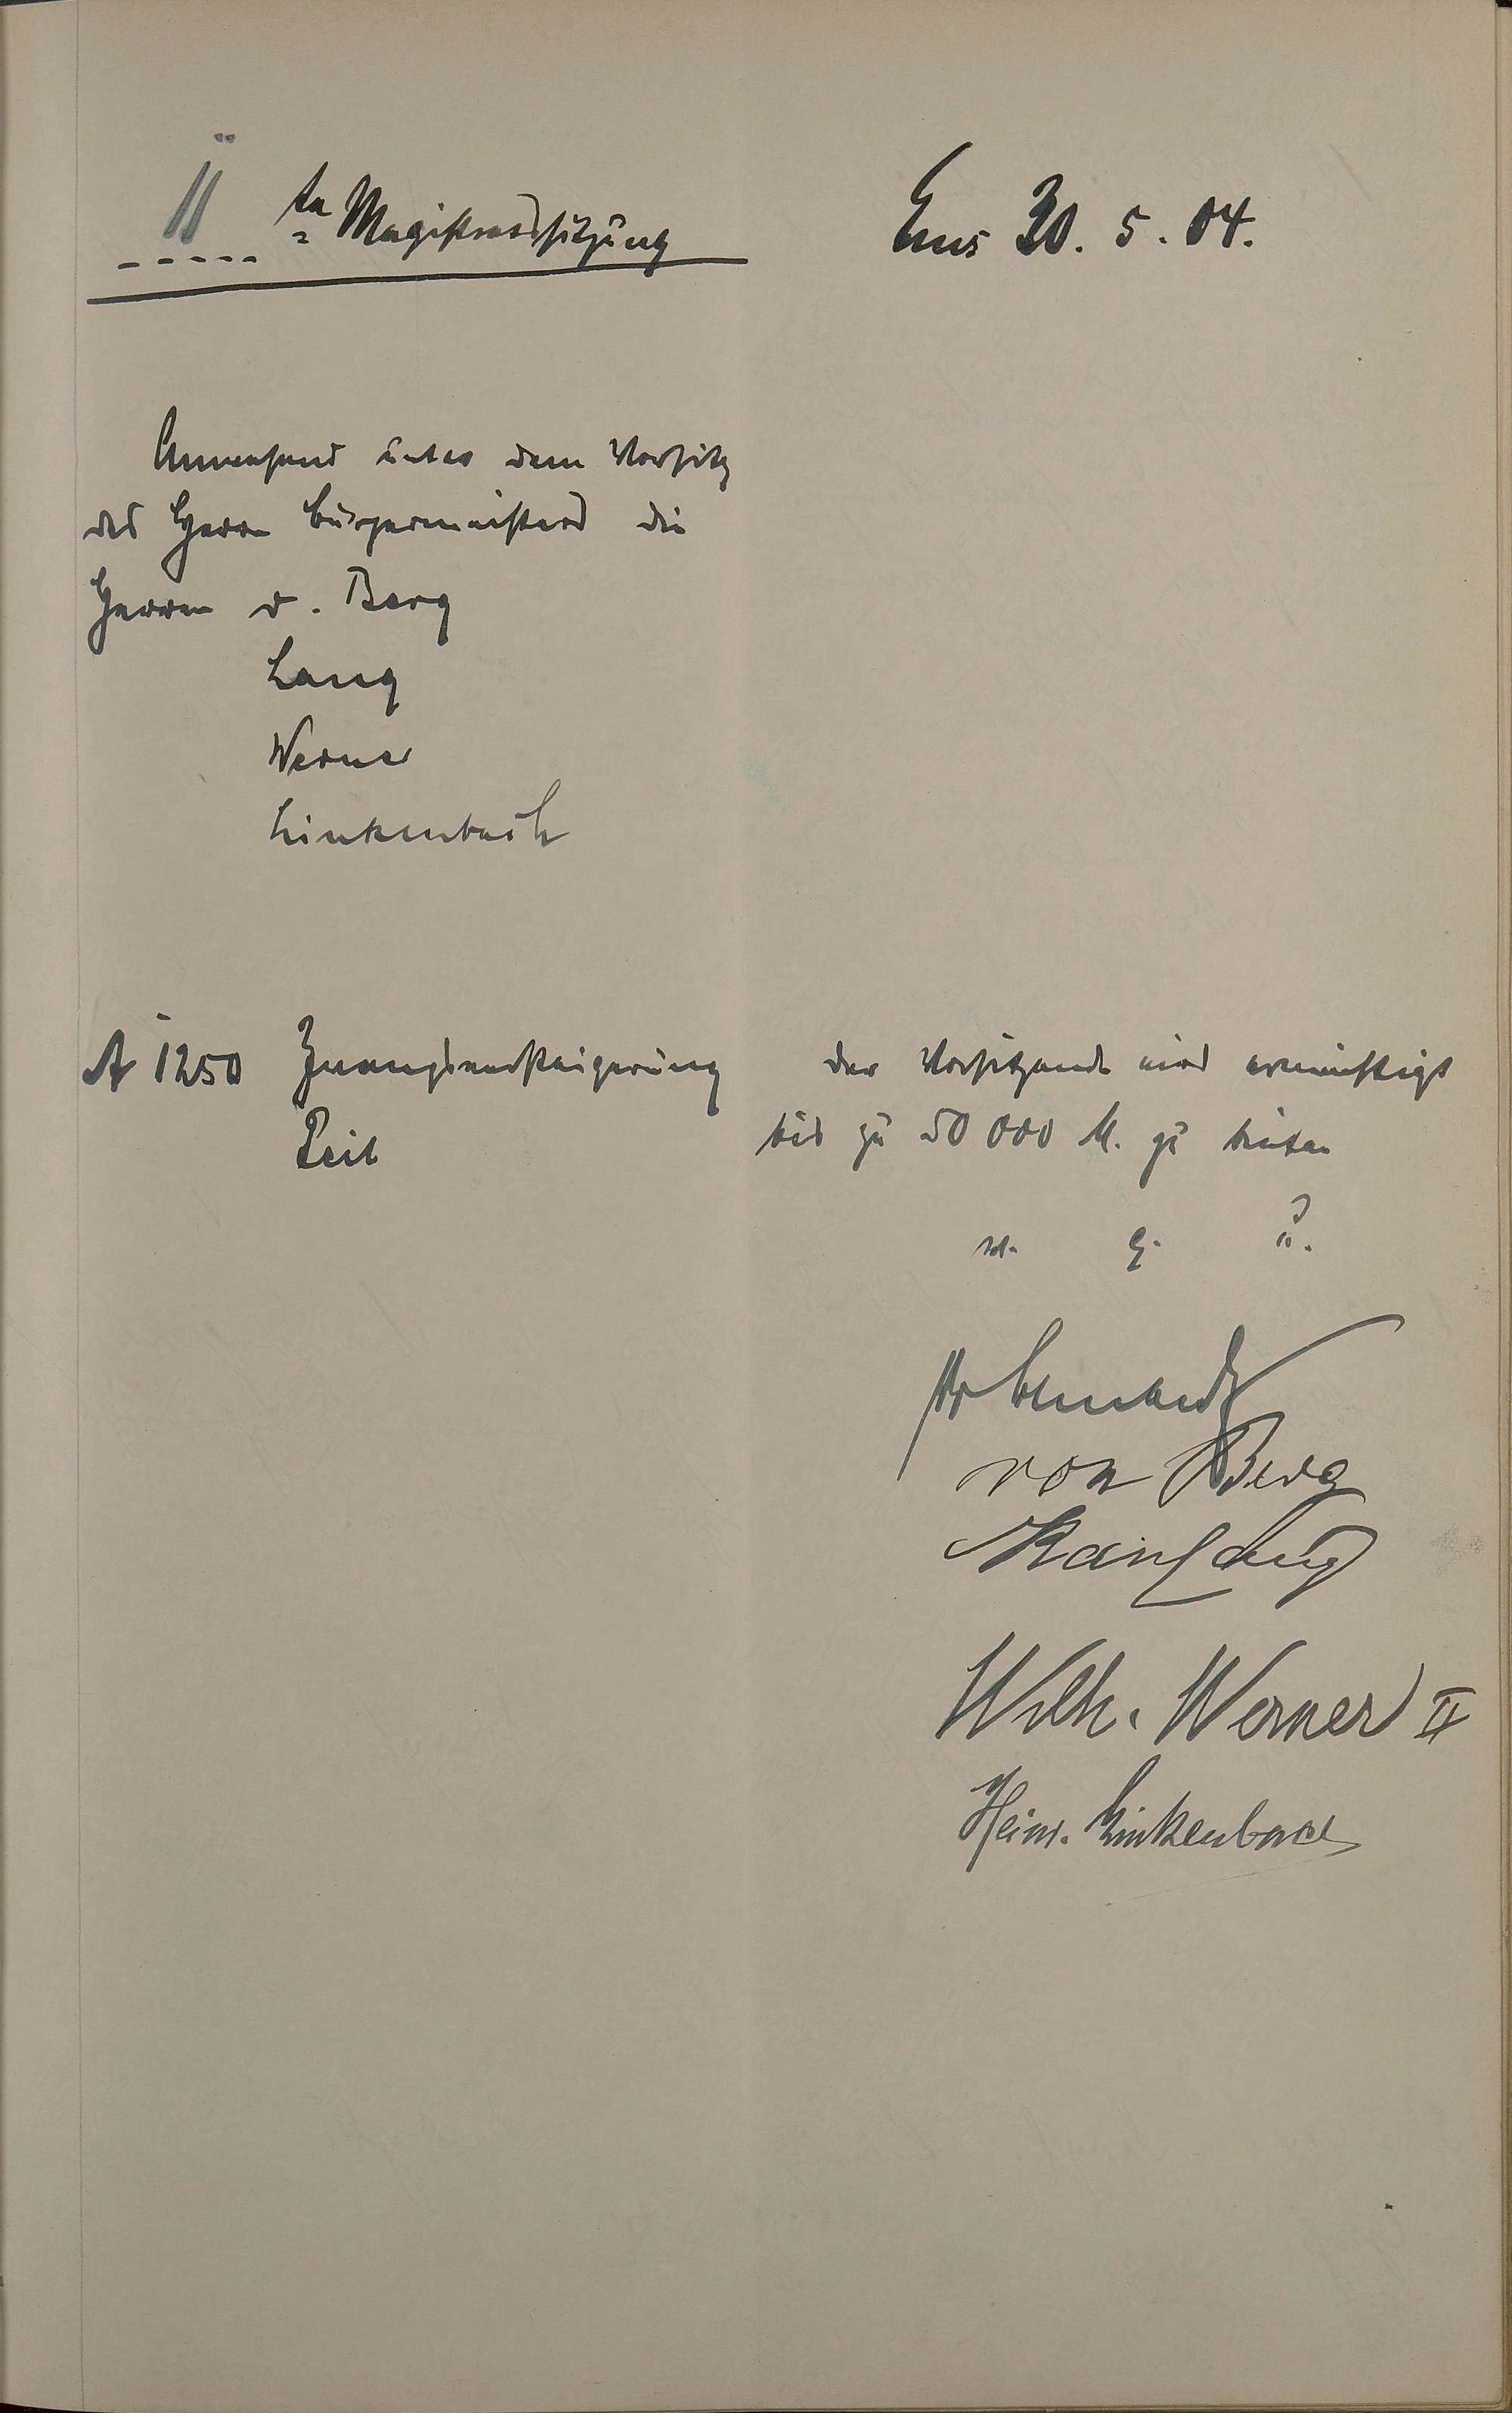 11 te Magistratssitzung
Ems 30. 5. 04.
Anwesend unter dem Vorsitz
des Herrn Bürgermeisters die
Herren v. Berg
Lang
Werner
Linkenbach
A 1250 Zwangsversteigerung
Der Vorsitzende wird ermächtigt
bis zu 50 000 M. zu bieten
v. g. u.
von Berg
Karl Lang
Wilh. Werner II
Heinr. Linkenbach